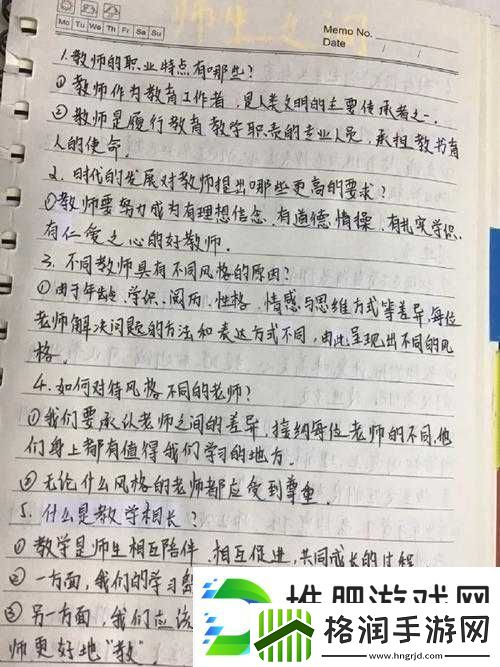 师生之间
Memo No.
Mo Tu We Th Fr Sa Su
Date / /
1.教师的职业特点有哪些?
①教师作为教育工作者,是人类文明的主要传承者之一.
②教师是履行教育教学职责的专业人员,承担教书育
人的使命.
2.时代的发展对教师提出哪些更高的要求?
①教师要努力成为有理想信念、有道德情操、有扎实学识、
有仁爱之心的好教师.
3.不同教师具有不同风格的原因?
①由于年龄、学识、阅历、性格、情感与思维方式等差异,每位
老师解决问题的方法和表达方式不同,由此呈现出不同的风
格.
4.如何对待风格不同的老师?
①我们要承认老师之间的差异,接纳每位老师的不同,他
们身上都有值得我们学习的地方.
②无论什么风格的老师都应受到尊重.
5.什么是教学相长?
①教学是师生相互陪伴、相互促进、共同成长的过程.
②一方面,我们的学习
③另一方面,我们应该
师更好地"教"
推肥游戏网
格润手游网
www.hngrjd.com